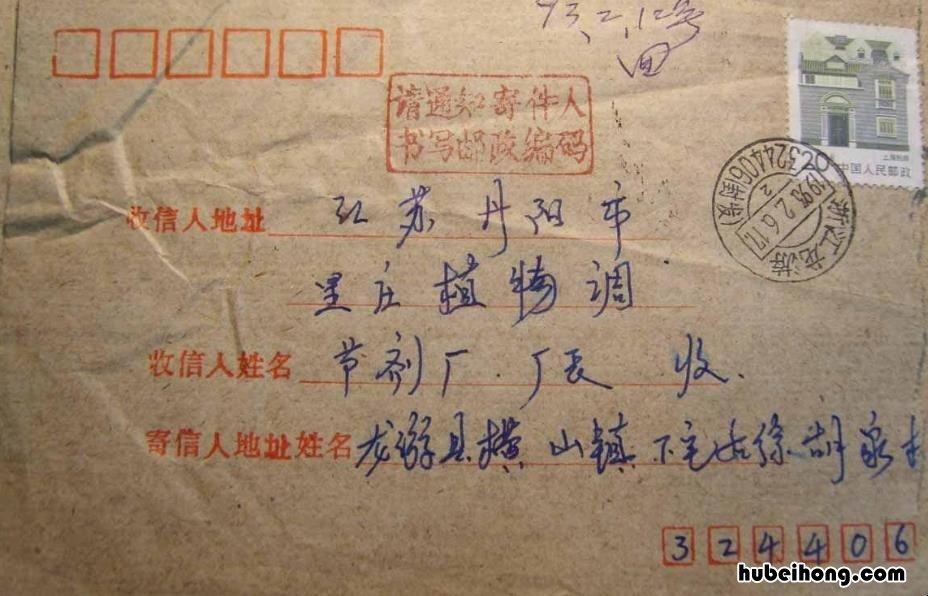 93.2.12号
回
请通知寄件人
书写邮政编码
上海民居
中国人民邮政
324406(封发)
浙江龙游
收信人地址 江苏丹阳市
里庄植物调
收信人姓名 节剂厂.厂长 收.
寄信人地址姓名 龙游县横山镇下宅 徐胡家村
324406
hubeihong.com